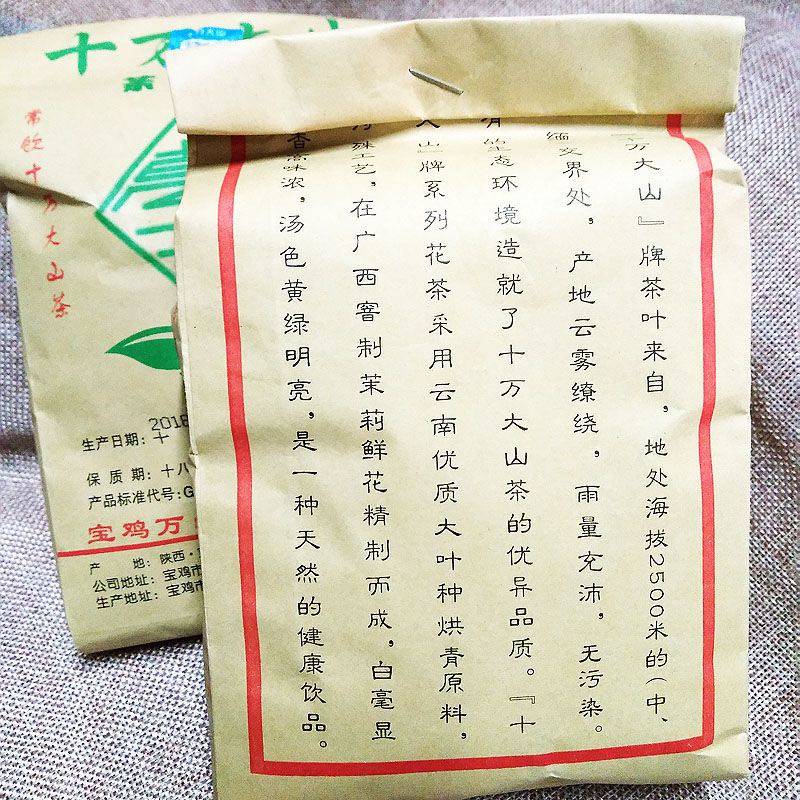 十万大山
茶
常饮十万大山茶
2018
生产日期：十
保质期：十八
产品标准代号：G
宝鸡万
产地：陕西·
公司地址：宝鸡市
生产地址：宝鸡市
十万大山』牌茶叶来自，地处海拔2500米的（中、
缅交界处，产地云雾缭绕，雨量充沛，无污染。
有的生态环境造就了十万大山茶的优异品质。『十
大山』牌系列花茶采用云南优质大叶种烘青原料，
特殊工艺，在广西窨制茉莉鲜花精制而成，白毫显
香高味浓，汤色黄绿明亮，是一种天然的健康饮品。